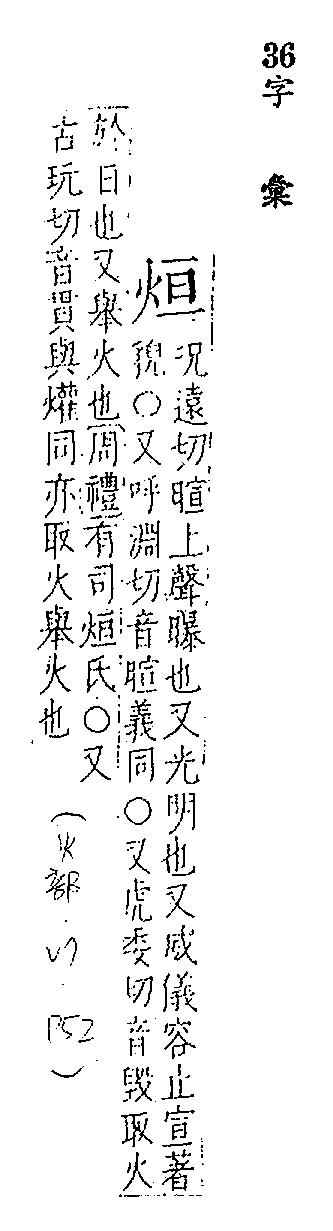 36
字彙
烜
況遠切暄上聲曝也又光明也又威儀容止宣著
貌○又呼淵切音暄義同○又虎委切音毀取火
於日也又舉火也周禮有司烜氏○又
古玩切音貫與爟同亦取火舉火也
(火部.V7.P52)